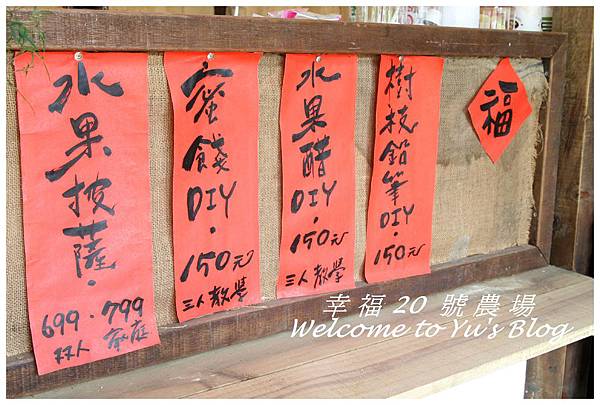 水果披薩·
699·799
双人 家庭
蜜餞DIY·150元
三人教學
水果醋DIY·150元
三人教學
樹枝鉛筆DIY·150元
三人教學
福
幸福20號農場
Welcome to Yu's Blog